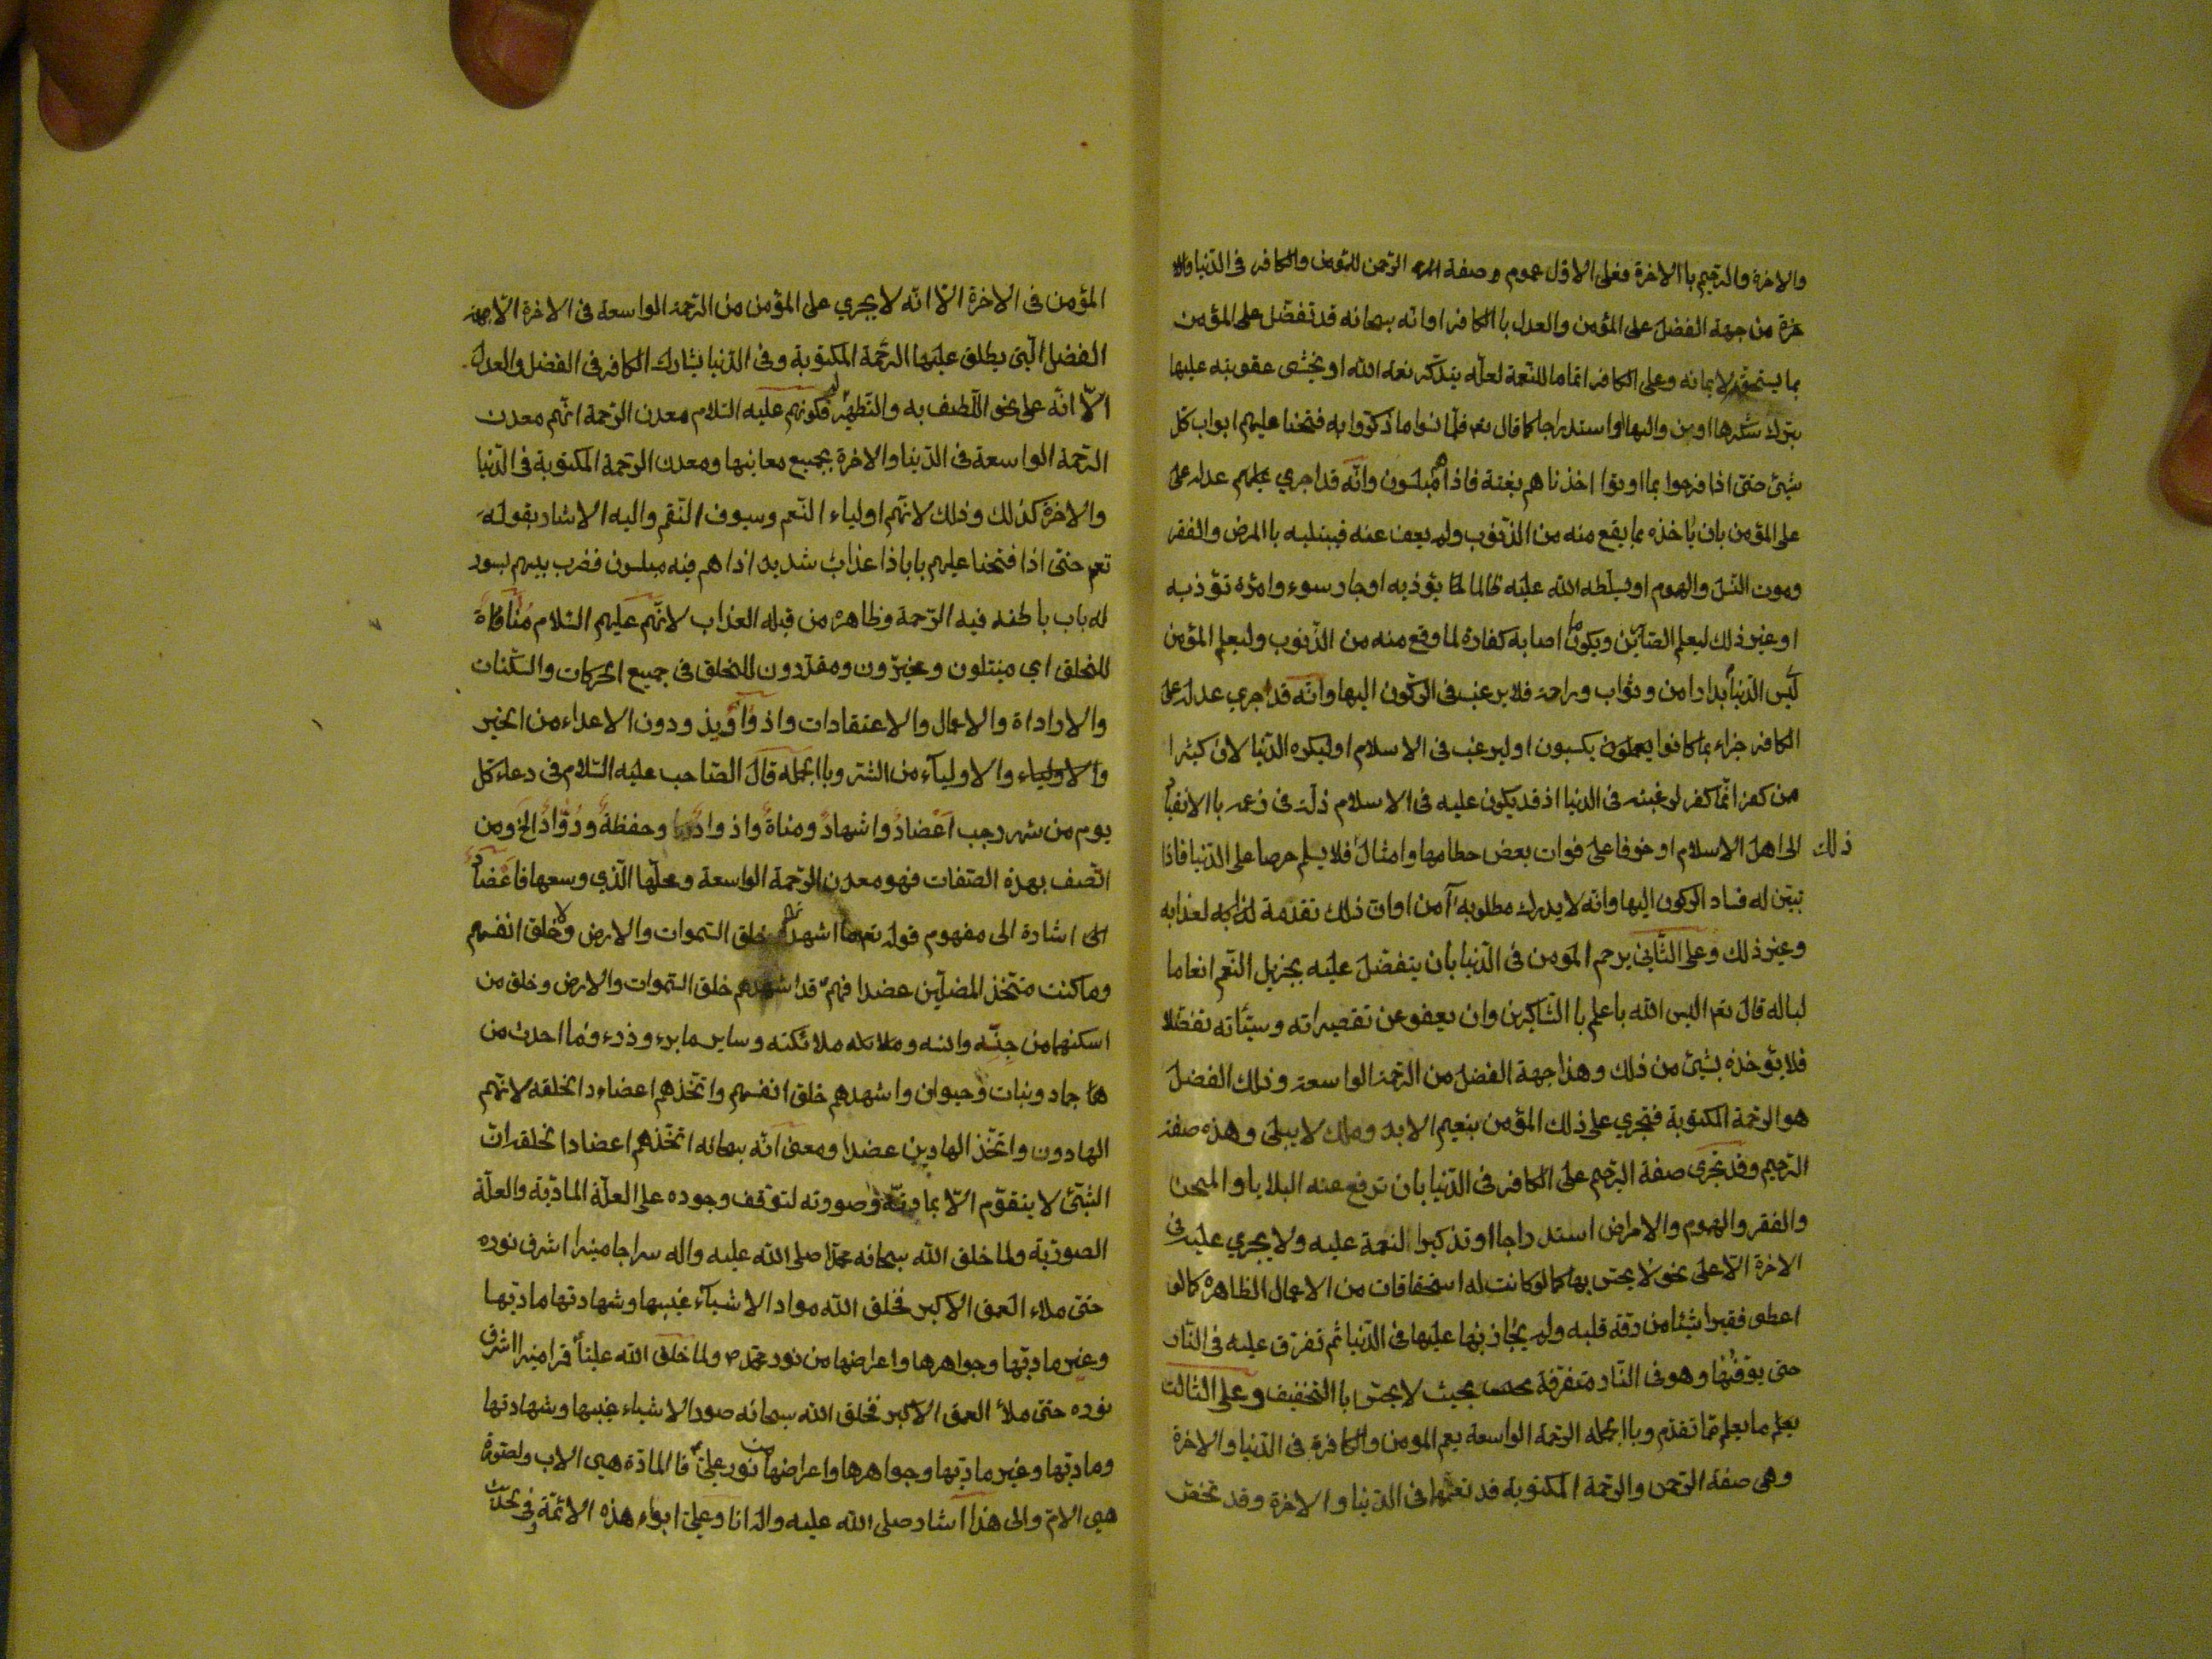 والاخرة والرحيم باالاخرة فعلى الاول عموم وصفة الرحمن للمؤمن والكافر فى الدنيا والا
خرة من جهة الفضل على المؤمن والعدل باالكافر اوانه سبحانه قد تفضل على المؤمن
بما يستحقه لايمانه وعلى الكافر اتماما للنعمة لعله يتذكر نعمة الله او يخشى عقوبته عليها
بترك شكرها اومن والبها او استدراجا كما قال تعم فلما نسوا ما ذكروا به فتحنا عليهم ابواب كل
شيئ حتى اذا فرحوا بما اوتوا اخذناهم بغتة فاذاهم مبلسون وانه قد اجري عليهم عدله على
على المؤمن بان ياخذه بما يقع منه من الذنوب ولم يعف عنه فيبتليه باالمرض والفقر
وموت النسل والهموم او يسلطه الله عليه ظالما لما يؤذيه او جار سوء وامرءة تؤذيه
اوغير ذلك ليعلم الصابرين ويكون ما اصابه كفارة لما وقع منه من الذنوب وليعلم المؤمن
ليس الدنيا بدار امن وثواب وراحة فلا يرغب فى الركون اليها وانه قد اجري عدله على
الكافر جزاء بما كانوا يعملون يكسبون او ليرغب فى الاسلام او ليكره الدنيا لان كثيرا
من كفر انما كفر لرغبته فى الدنيا اذ قد يكون عليه فى الاسلام ذلة فى زعمه باالانقياد
ذلك الى اهل الاسلام او خوفا على فوات بعض حطامها وامثال فلا يسلم حرصا على الدنيا فاذا
تبين له فساد الركون اليها وانه لا يدرك مطلوبه آمن اوان ذلك تقدمة لعذابه
وغير ذلك وعلى الثانى يرحم المؤمن فى الدنيا بان يتفضل عليه بجزيل النعم انعاما
لباله قال تعم اليس الله باعلم باالشاكرين وان يعفو عن تقصيراته وسيئاته تفضلا
فلا يؤخذه بشيئ من ذلك وهذا جهة الفضل من الرحمة الواسعة وذلك الفضل
هو الرحمة المكتوبة فتجري على ذلك المؤمن بنعيم الابد وملك لا يبلى وهذه صفة
الرحيم وقد تجرى صفة الرحيم على الكافر فى الدنيا بان ترفع عنه البلايا والمحن
والفقر والهموم والامراض استدراجا او تذكيرا لنعمة عليه ولا يجري عليه فى
الاخرة الا على نحو لا يحس بها كما لو كانت له استحقاقات من الاعمال الظاهرة كما لو
اعطى فقيرا شيئا من رقة قلبه ولم يجاز بها عليها فى الدنيا ثم تفرق عليه فى النار
حتى يوفيها وهو فى النار متفرقة بحيث لا يحس باالتخفيف وعلى الثالث
يعلم ما يعلم مما تقدم وباالجملة الرحمة الواسعة يعم المؤمن والكافرة فى الدنيا والاخرة
وهى صفة الرحمن والرحمة المكتوبة قد تعمها فى الدنيا والاخرة وقد تختص
المؤمن فى الاخرة الا انه لا يجري على المؤمن من الرحمة الواسعة فى الاخرة الا جهة
الفضل التى يطلق عليها الرحمة المكتوبة وفى الدنيا يشارك الكافر فى الفضل والعدل
الا انه على نحو اللطيف به والتطهير له فكونهم عليه السلام معدن الرحمة انهم معدن
الرحمة الواسعة فى الدنيا والاخرة بجميع معانيها ومعدن الرحمة المكتوبة فى الدنيا
والاخرة كذلك وذلك لانهم اولياء النعم وسيوف النقم واليه الاشار بقوله
تعم حتى اذا فتحنا عليهم بابا ذا عذاب شديد اذا هم فيه مبلسون فضرب بينهم بسور
له باب باطنه فيه الرحمة وظاهره من قبله العذاب لانهم عليهم السلام مناة
للخلق اي مبتلون ومخبرون ومقدرون للخلق فى جميع الحركات والسكنات
والاراداة والاعمال والاعتقادات واذواد يذودون الاعداء من الخير
والاولياء والاوليآء من الشر وباالجملة قال الصاحب عليه السلام فى دعاء كل
يوم من شهر رجب اعضاد واشهاد ومناة واذواد وحفظة ورواد الخ ومن
اتصف بهذه الصفات فهو معدن الرحمة الواسعة ومحلها الذي وسعها فاعضاد
الى اشارة الى مفهوم قوله تعم ما اشهدتهم خلق السموات والارض ولا خلق انفسهم
وما كنت متخذ المضلين عضدا فهم قد اشهدهم خلق السموات والارض وخلق من
اسكنها من جنه وانسه وملائكته وساير ما برء وذرء وما احدث من
جماد ونبات وحيوان واشهدهم خلق انفسهم واتخذهم اعضاء دا لخلقه لانهم
الهادون واتخذ الهادين عضدا ومعنى انه سبحانه اتخذهم اعضادا لخلقه ان
الشيئ لا يتقوم الا بمادته وصورته لتوقف وجوده على العلة المادية والعلة
الصورية ولما خلق الله سبحانه محمدا صلى الله عليه واله سراجا منيرا اشرق نوره
حتى ملاء العمق الاكبر فخلق الله مواد الاشيآء غيبها وشهادتها ماديها
وغير ماديها وجواهرها واعراضها من نور محمد ص ولما خلق الله عليا قمرا منيرا اشرق
نوره حتى ملأ العمق الاكبر فخلق الله سبحانه صور الاشياء غيبها وشهادتها
وماديها وغير ماديها وجواهرها واعراضها من نور علي فا المادة هى الاب والصورة
هى الام والى هذا اشار صلى الله عليه واله انا وعلي ابواء هذه الائمة وفى